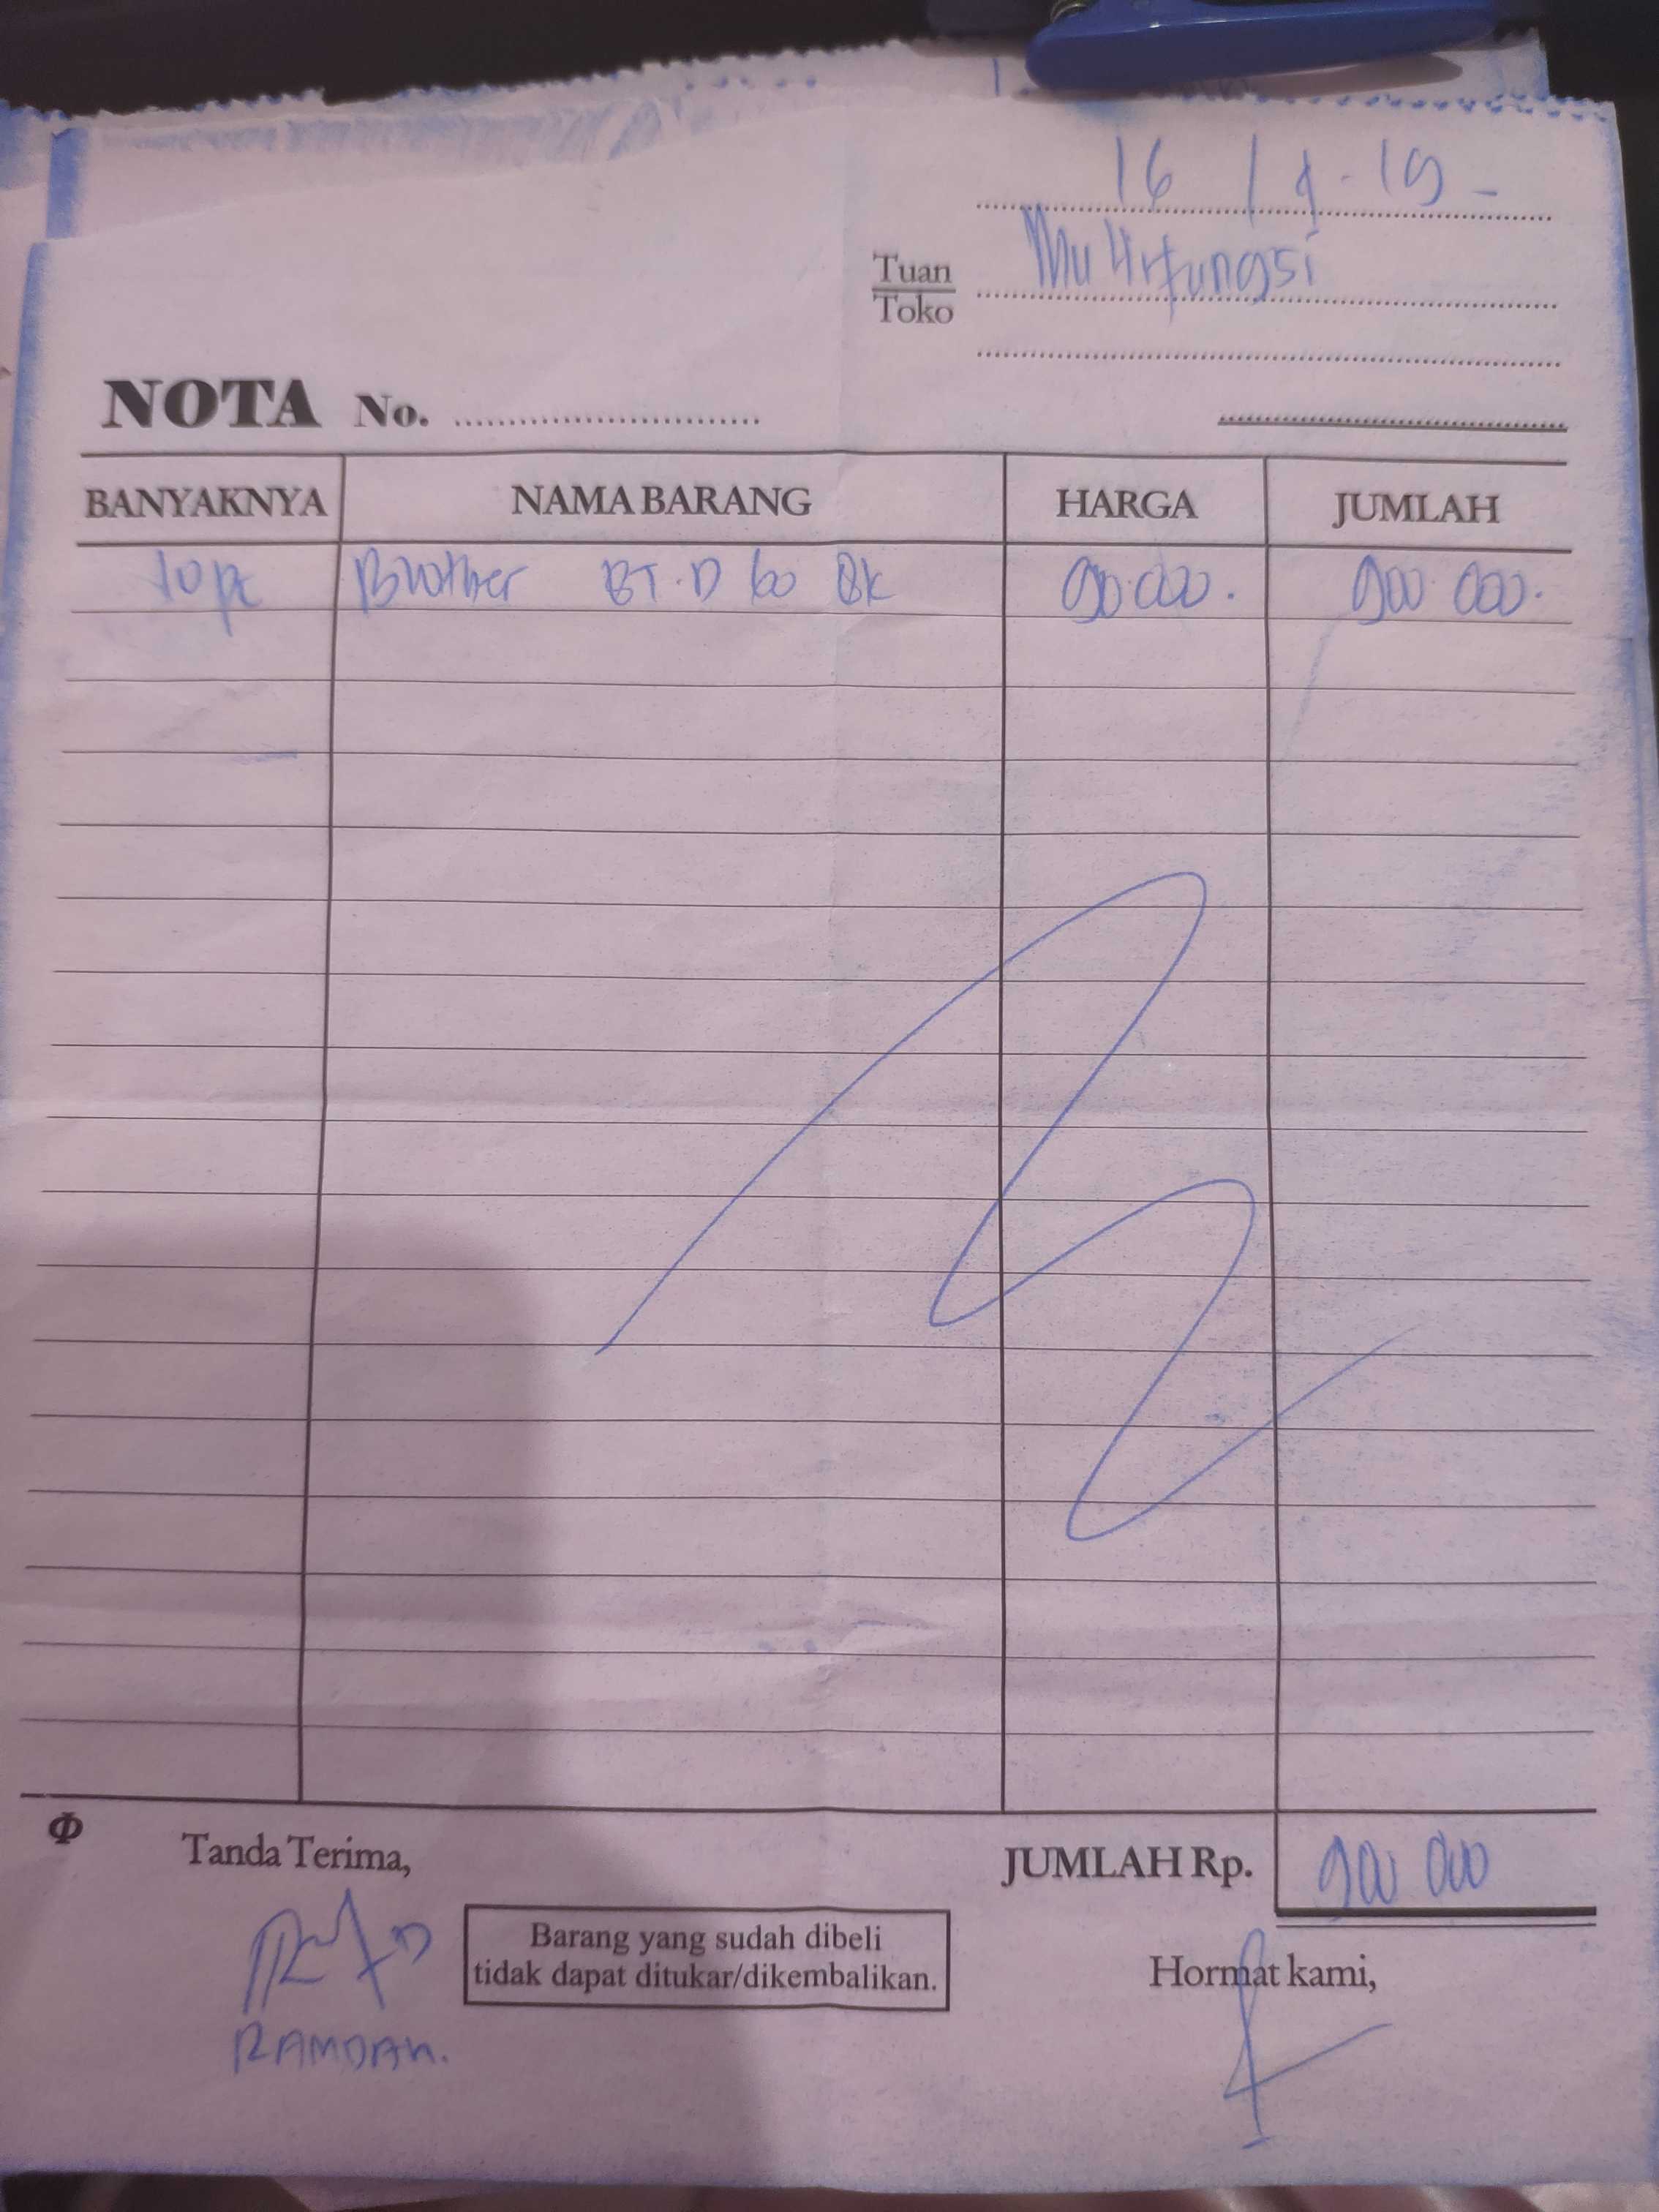 16 / 4 - 19 -
Tuan
Toko
Multifungsi
NOTA No.
BANYAKNYA NAMA BARANG HARGA JUMLAH
10 pc Brother BT.D 60 BK 90.000. 900 000.
Φ
Tanda Terima,
JUMLAH Rp. 900 000
Barang yang sudah dibeli
tidak dapat ditukar/dikembalikan.
Hormat kami,
RAMDAN.